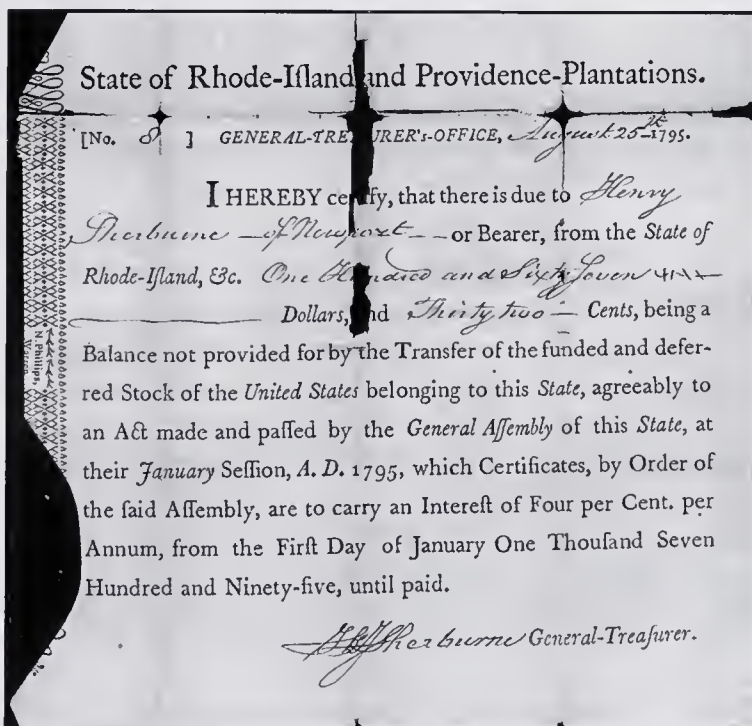 State of Rhode-Iſland and Providence-Plantations.
[No. 8 ] GENERAL-TREASURER's-OFFICE, August 25th 1795.
I HEREBY certify, that there is due to Henry
Sherburne — of Newport — or Bearer, from the State of
Rhode-Iſland, &c. One Hundred and Sixty Seven
Dollars, and Thirty two — Cents, being a
Balance not provided for by the Transfer of the funded and defer-
red Stock of the United States belonging to this State, agreeably to
an Act made and paſſed by the General Aſſembly of this State, at
their January Seſſion, A. D. 1795, which Certificates, by Order of
the ſaid Aſſembly, are to carry an Intereſt of Four per Cent. per
Annum, from the Firſt Day of January One Thouſand Seven
Hundred and Ninety-five, until paid.
Sherburne General-Treaſurer.
N. Phillips,
Warren